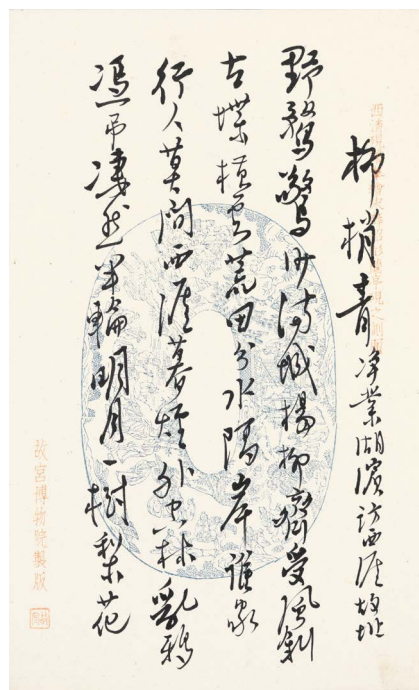 柳梢青 净業湖濱訪西涯故址
野鶩驚沙滿城楊柳齊受風斜
古堞橫雲荒田分水隔岸誰家
行人莫問西涯暮煙外空林亂鴉
馮弔凄然半輪明月一樹梨花
故宮博物院製版